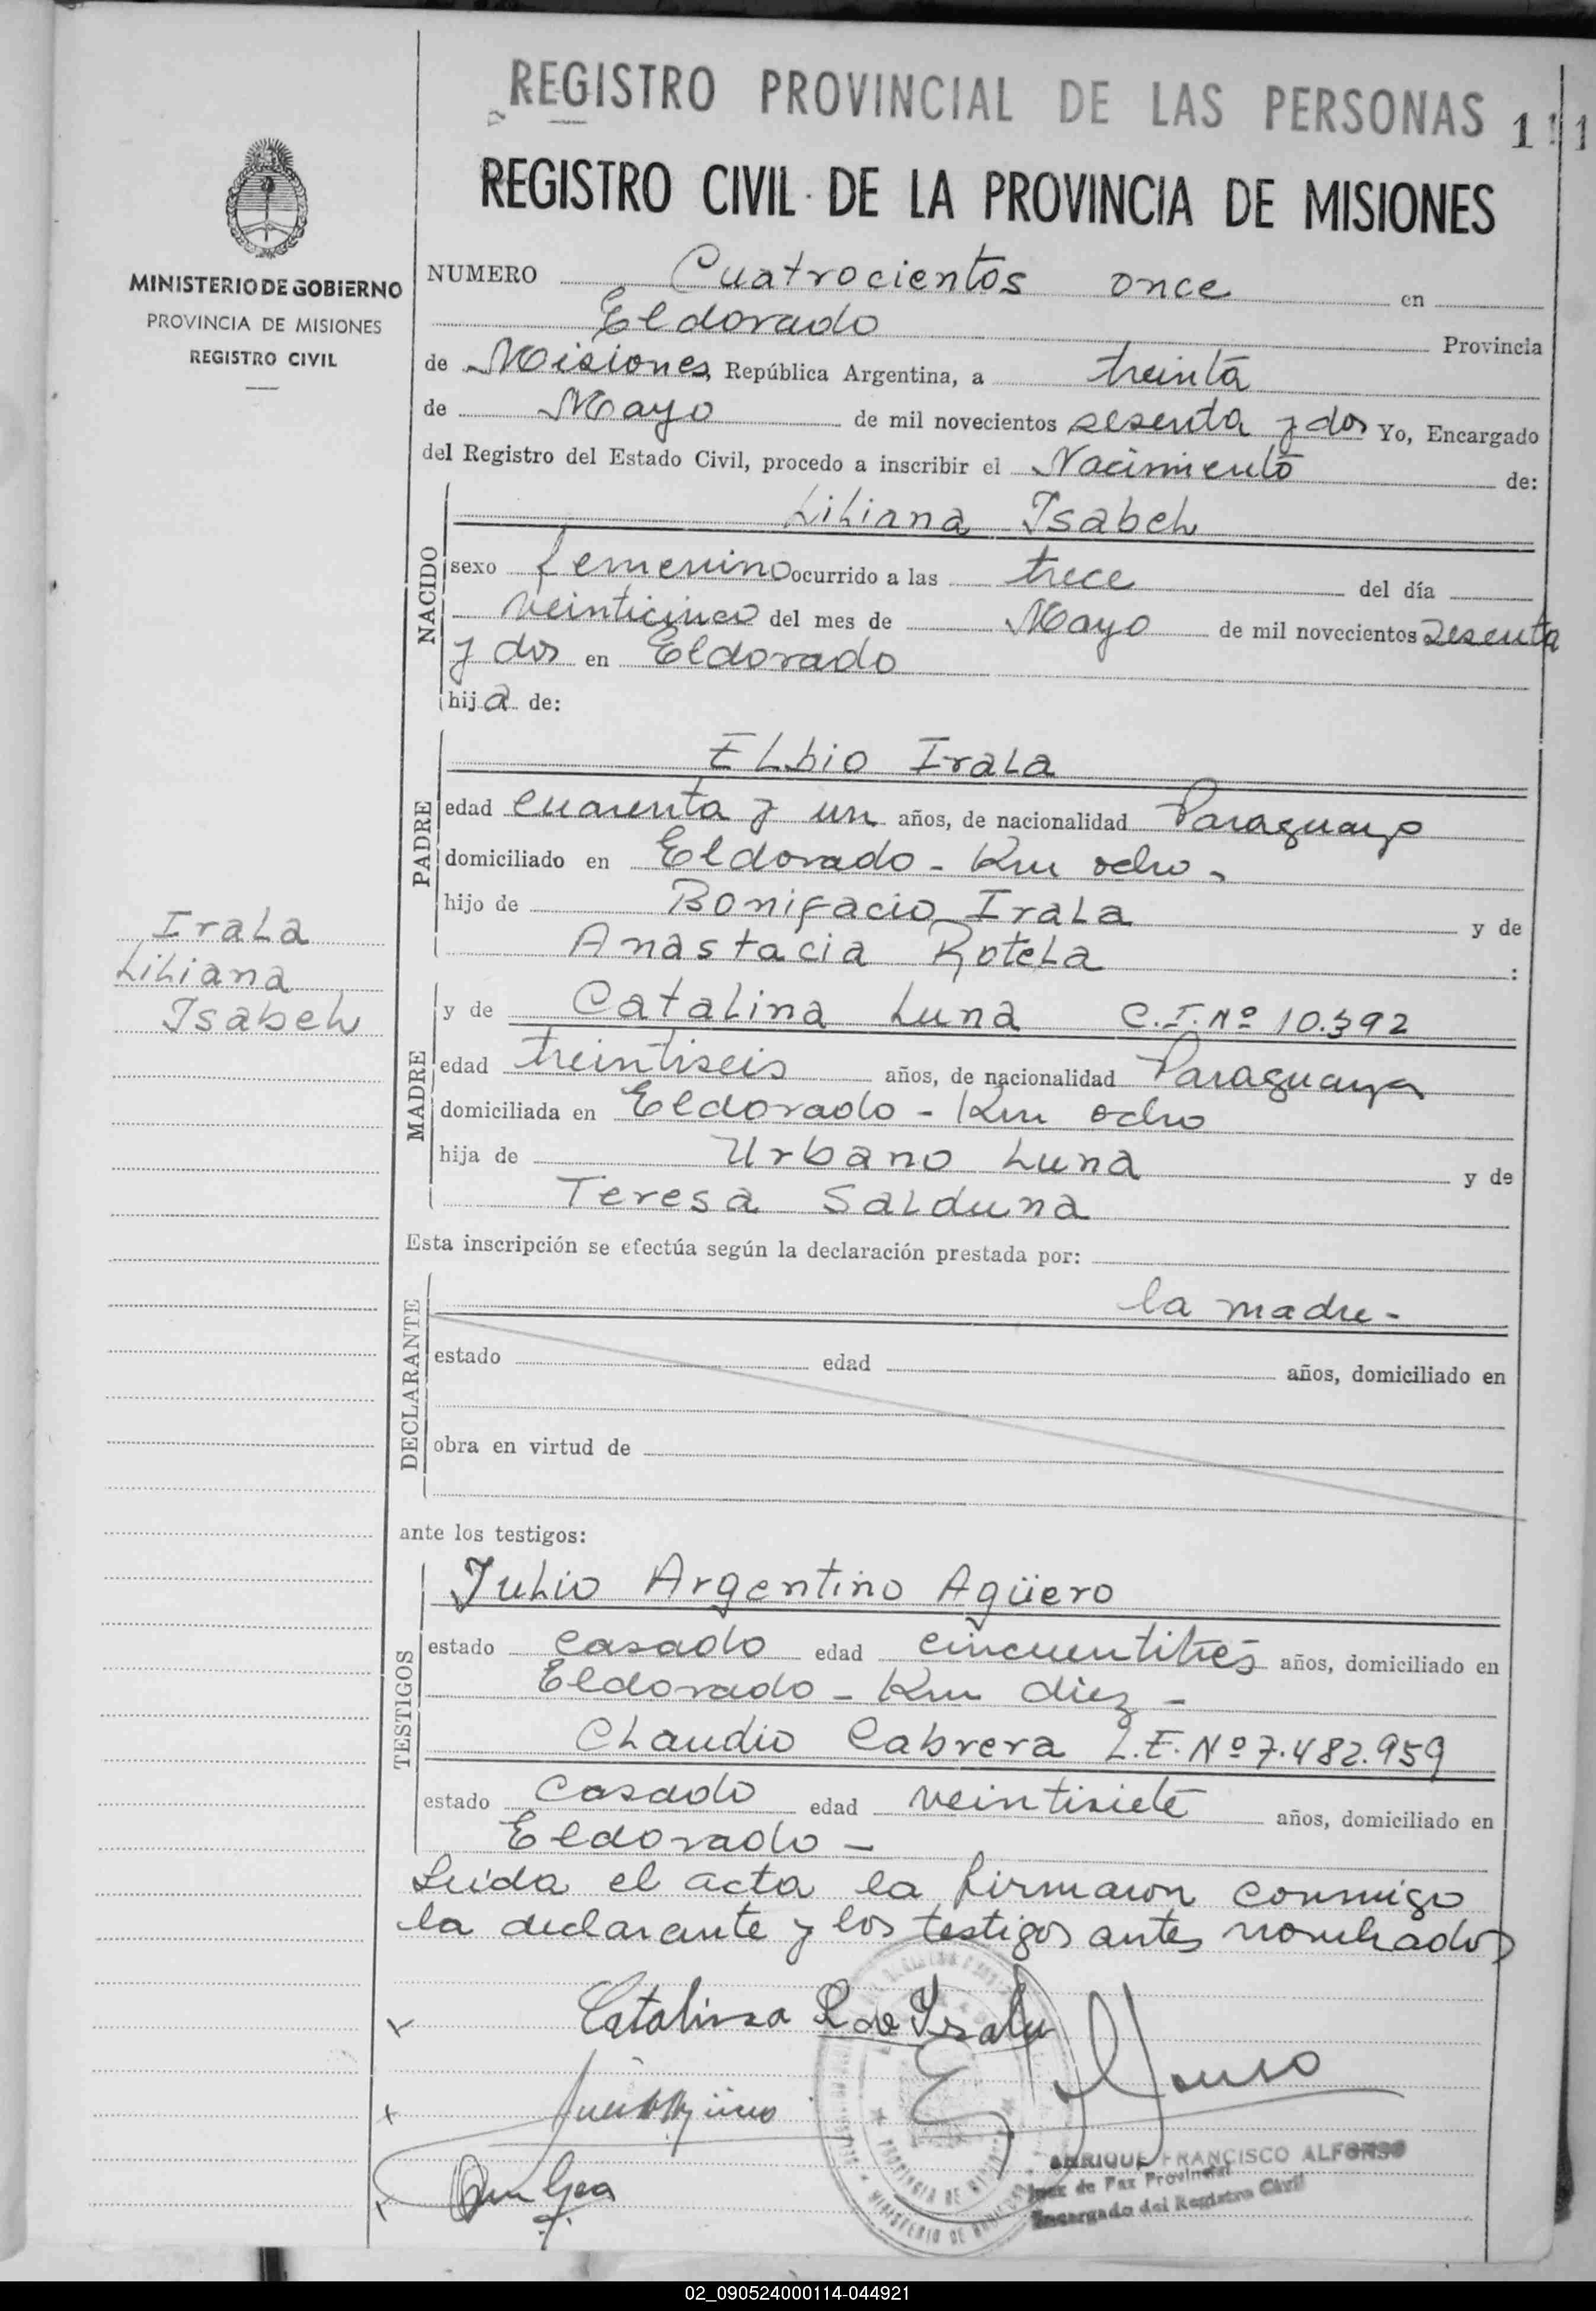 REGISTRO PROVINCIAL DE LAS PERSONAS
REGISTRO CIVIL DE LA PROVINCIA DE MISIONES
MINISTERIO DE GOBIERNO
PROVINCIA DE MISIONES
REGISTRO CIVIL
NUMERO Cuatrocientos once en
Eldorado Provincia
de Misiones, República Argentina, a treinta
de Mayo de mil novecientos sesenta y dos Yo, Encargado
del Registro del Estado Civil, procedo a inscribir el Nacimiento de:
NACIDO
Liliana Isabel
sexo femenino ocurrido a las trece del día
veinticinco del mes de Mayo de mil novecientos sesenta
y dos en Eldorado
hija de:
PADRE
Elbio Irala
edad cuarenta y un años, de nacionalidad Paraguayo
domiciliado en Eldorado - Km ocho -
hijo de Bonifacio Irala y de
Anastacia Rotela :
Irala
Liliana
Isabel
MADRE
y de Catalina Luna C.I. Nº 10.392
edad treintiseis años, de nacionalidad Paraguaya
domiciliada en Eldorado - Km ocho
hija de Urbano Luna y de
Teresa Salduna
Esta inscripción se efectúa según la declaración prestada por:
DECLARANTE
la madre -
estado edad años, domiciliado en
obra en virtud de
ante los testigos:
TESTIGOS
Julio Argentino Agüero
estado casado edad cincuentitrés años, domiciliado en
Eldorado - Km diez -
Claudio Cabrera L.E. Nº 7.482.959
estado casado edad veintisiete años, domiciliado en
Eldorado -
Leida el acta la firmaron conmigo
la declarante y los testigos antes nombrados
Catalina L de Irala
ENRIQUE FRANCISCO ALFONSO
Juez de Paz Provincial
Encargado del Registro Civil
02_090524000114-044921